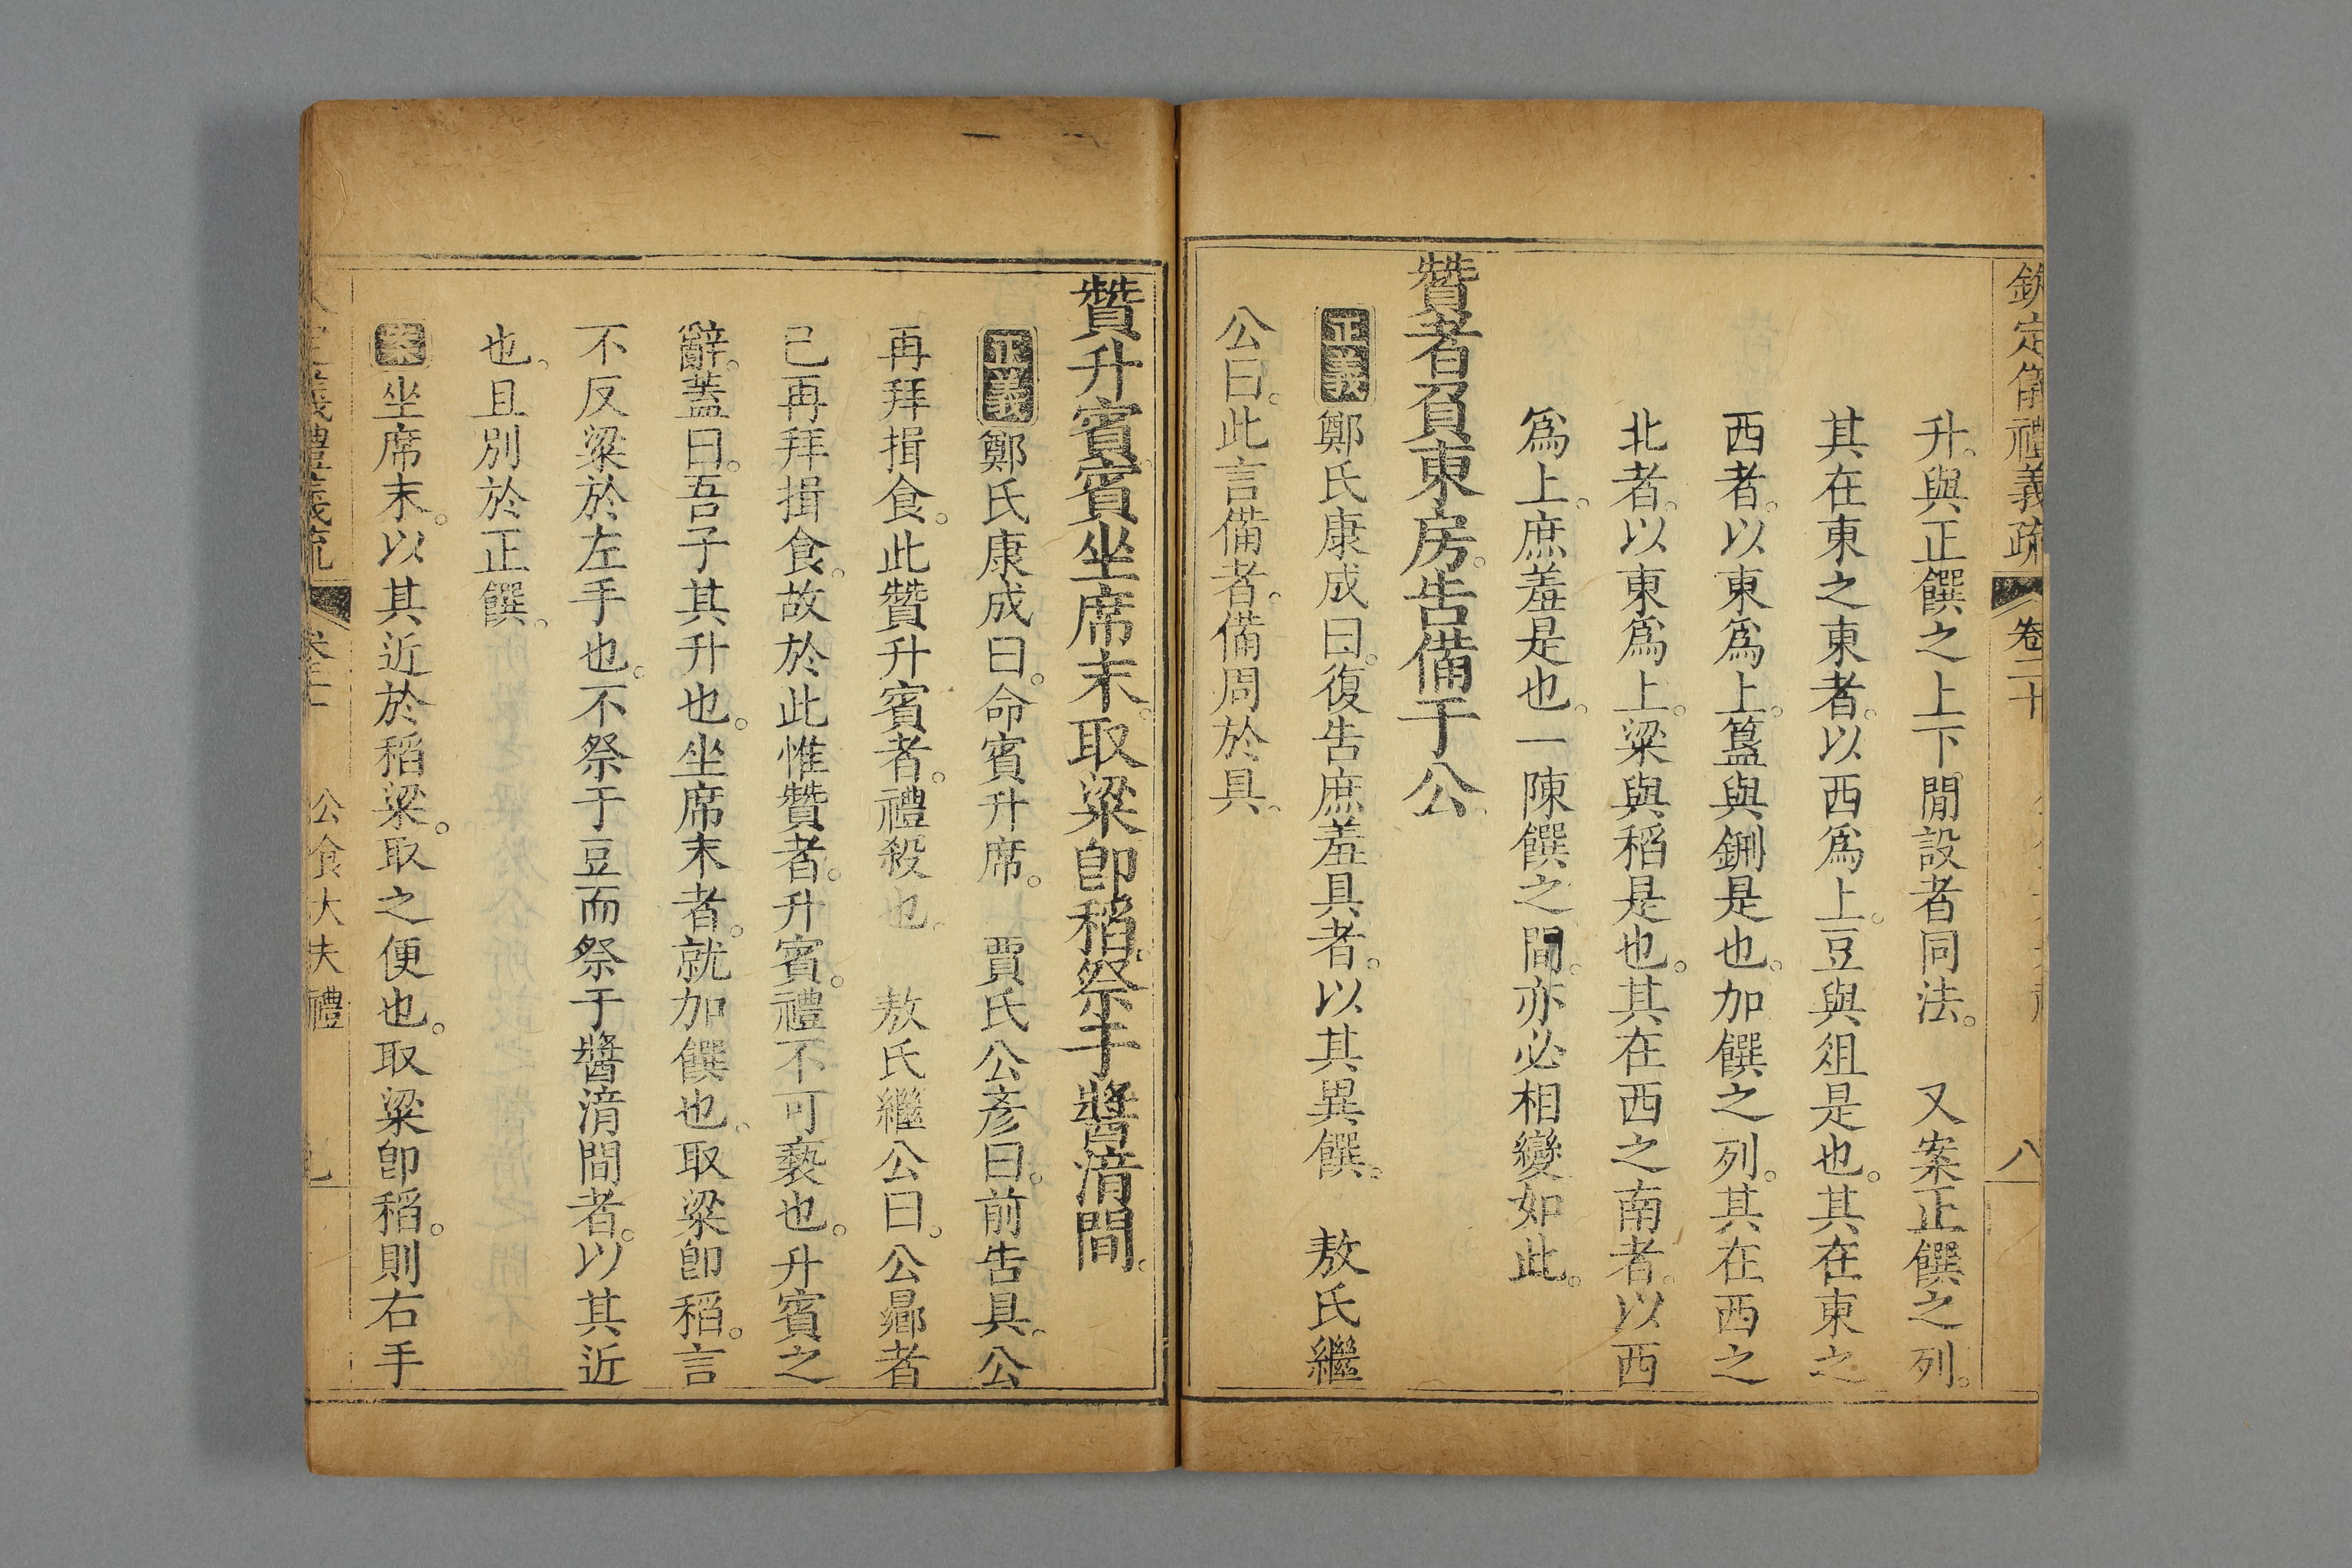 欽定儀禮義疏 卷二十 八
升。與正饌之上下閒設者同法。 又案正饌之列。
其在東之東者。以西爲上。豆與俎是也。其在東之
西者。以東爲上。簋與鉶是也。加饌之列。其在西之
北者。以東爲上。粱與稻是也。其在西之南者。以西
爲上。庶羞是也。一陳饌之間。亦必相變如此。
贊者負東房。告備于公。
正義 鄭氏康成曰。復告庶羞具者。以其異饌。 敖氏繼
公曰。此言備者。備周於具。
贊升賓。賓坐席末。取粱卽稻。祭于醬湇間。
正義 鄭氏康成曰。命賓升席。 賈氏公彥曰。前告具。公
再拜揖食。此贊升賓者。禮殺也。 敖氏繼公曰。公曏者
己再拜揖食。故於此惟贊者。升賓。禮不可褻也。升賓之
辭。蓋曰。吾子其升也。坐席末者。就加饌也。取粱卽稻。言
不反粱於左手也。不祭于豆而祭于醬湇間者。以其近
也。且別於正饌。
案 坐席末。以其近於稻粱。取之便也。取粱卽稻。則右手
義禮義疏 公食大夫禮